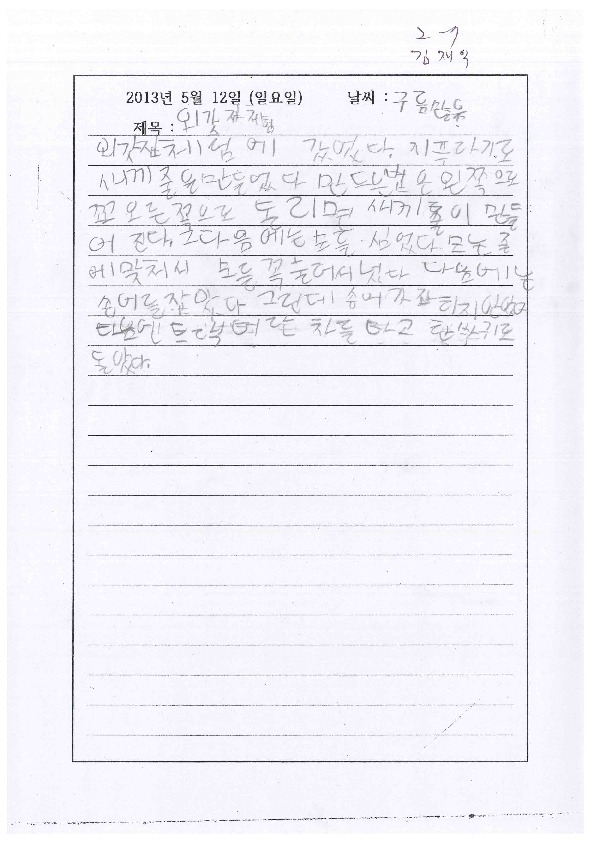 2-7
김재욱
2013년 5월 12일 (일요일) 날씨 : 구름만음
제목 : 외갓집체험
외갓집체험에 갔었다. 지푸라기로
새끼줄을 만들었다 만드는법은 왼쪽으로
꼬 오른쪽으로 돌리며 새끼줄이 만들
어 진다. 그다음에는 모를 심었다 모눈줄
에맞처서 모를 꼭눌어서넛다 다음에는
송어를잡았다 그런데 송어가잘 타지안았다
다음엔 트랙터란 차를 타고 한바퀴로
돌았다.